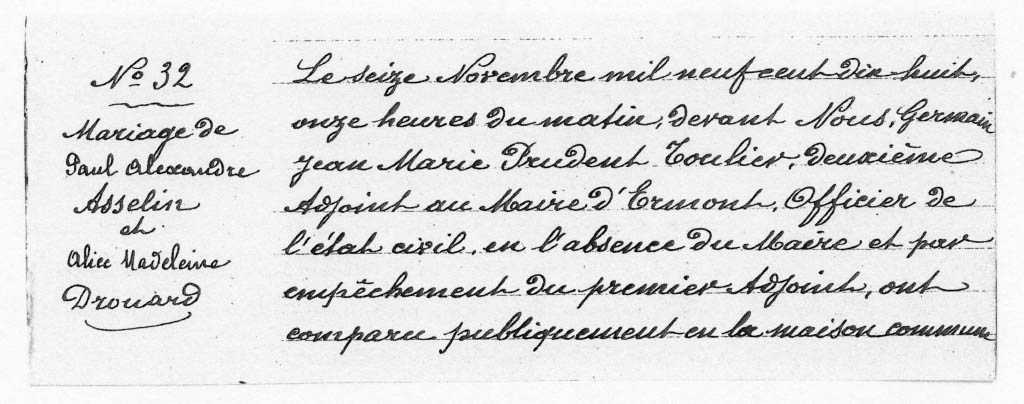 No 32
Mariage de
Paul Alexandre
Asselin
et
Alice Madeleine
Drouard
Le seize Novembre mil neuf cent dix-huit,
onze heures du matin, devant Nous, Germain
Jean Marie Prudent Toulier, deuxième
Adjoint au Maire d'Ermont, Officier de
l'état civil, en l'absence du Maire et par
empêchement du premier Adjoint, ont
comparu publiquement en la maison commune